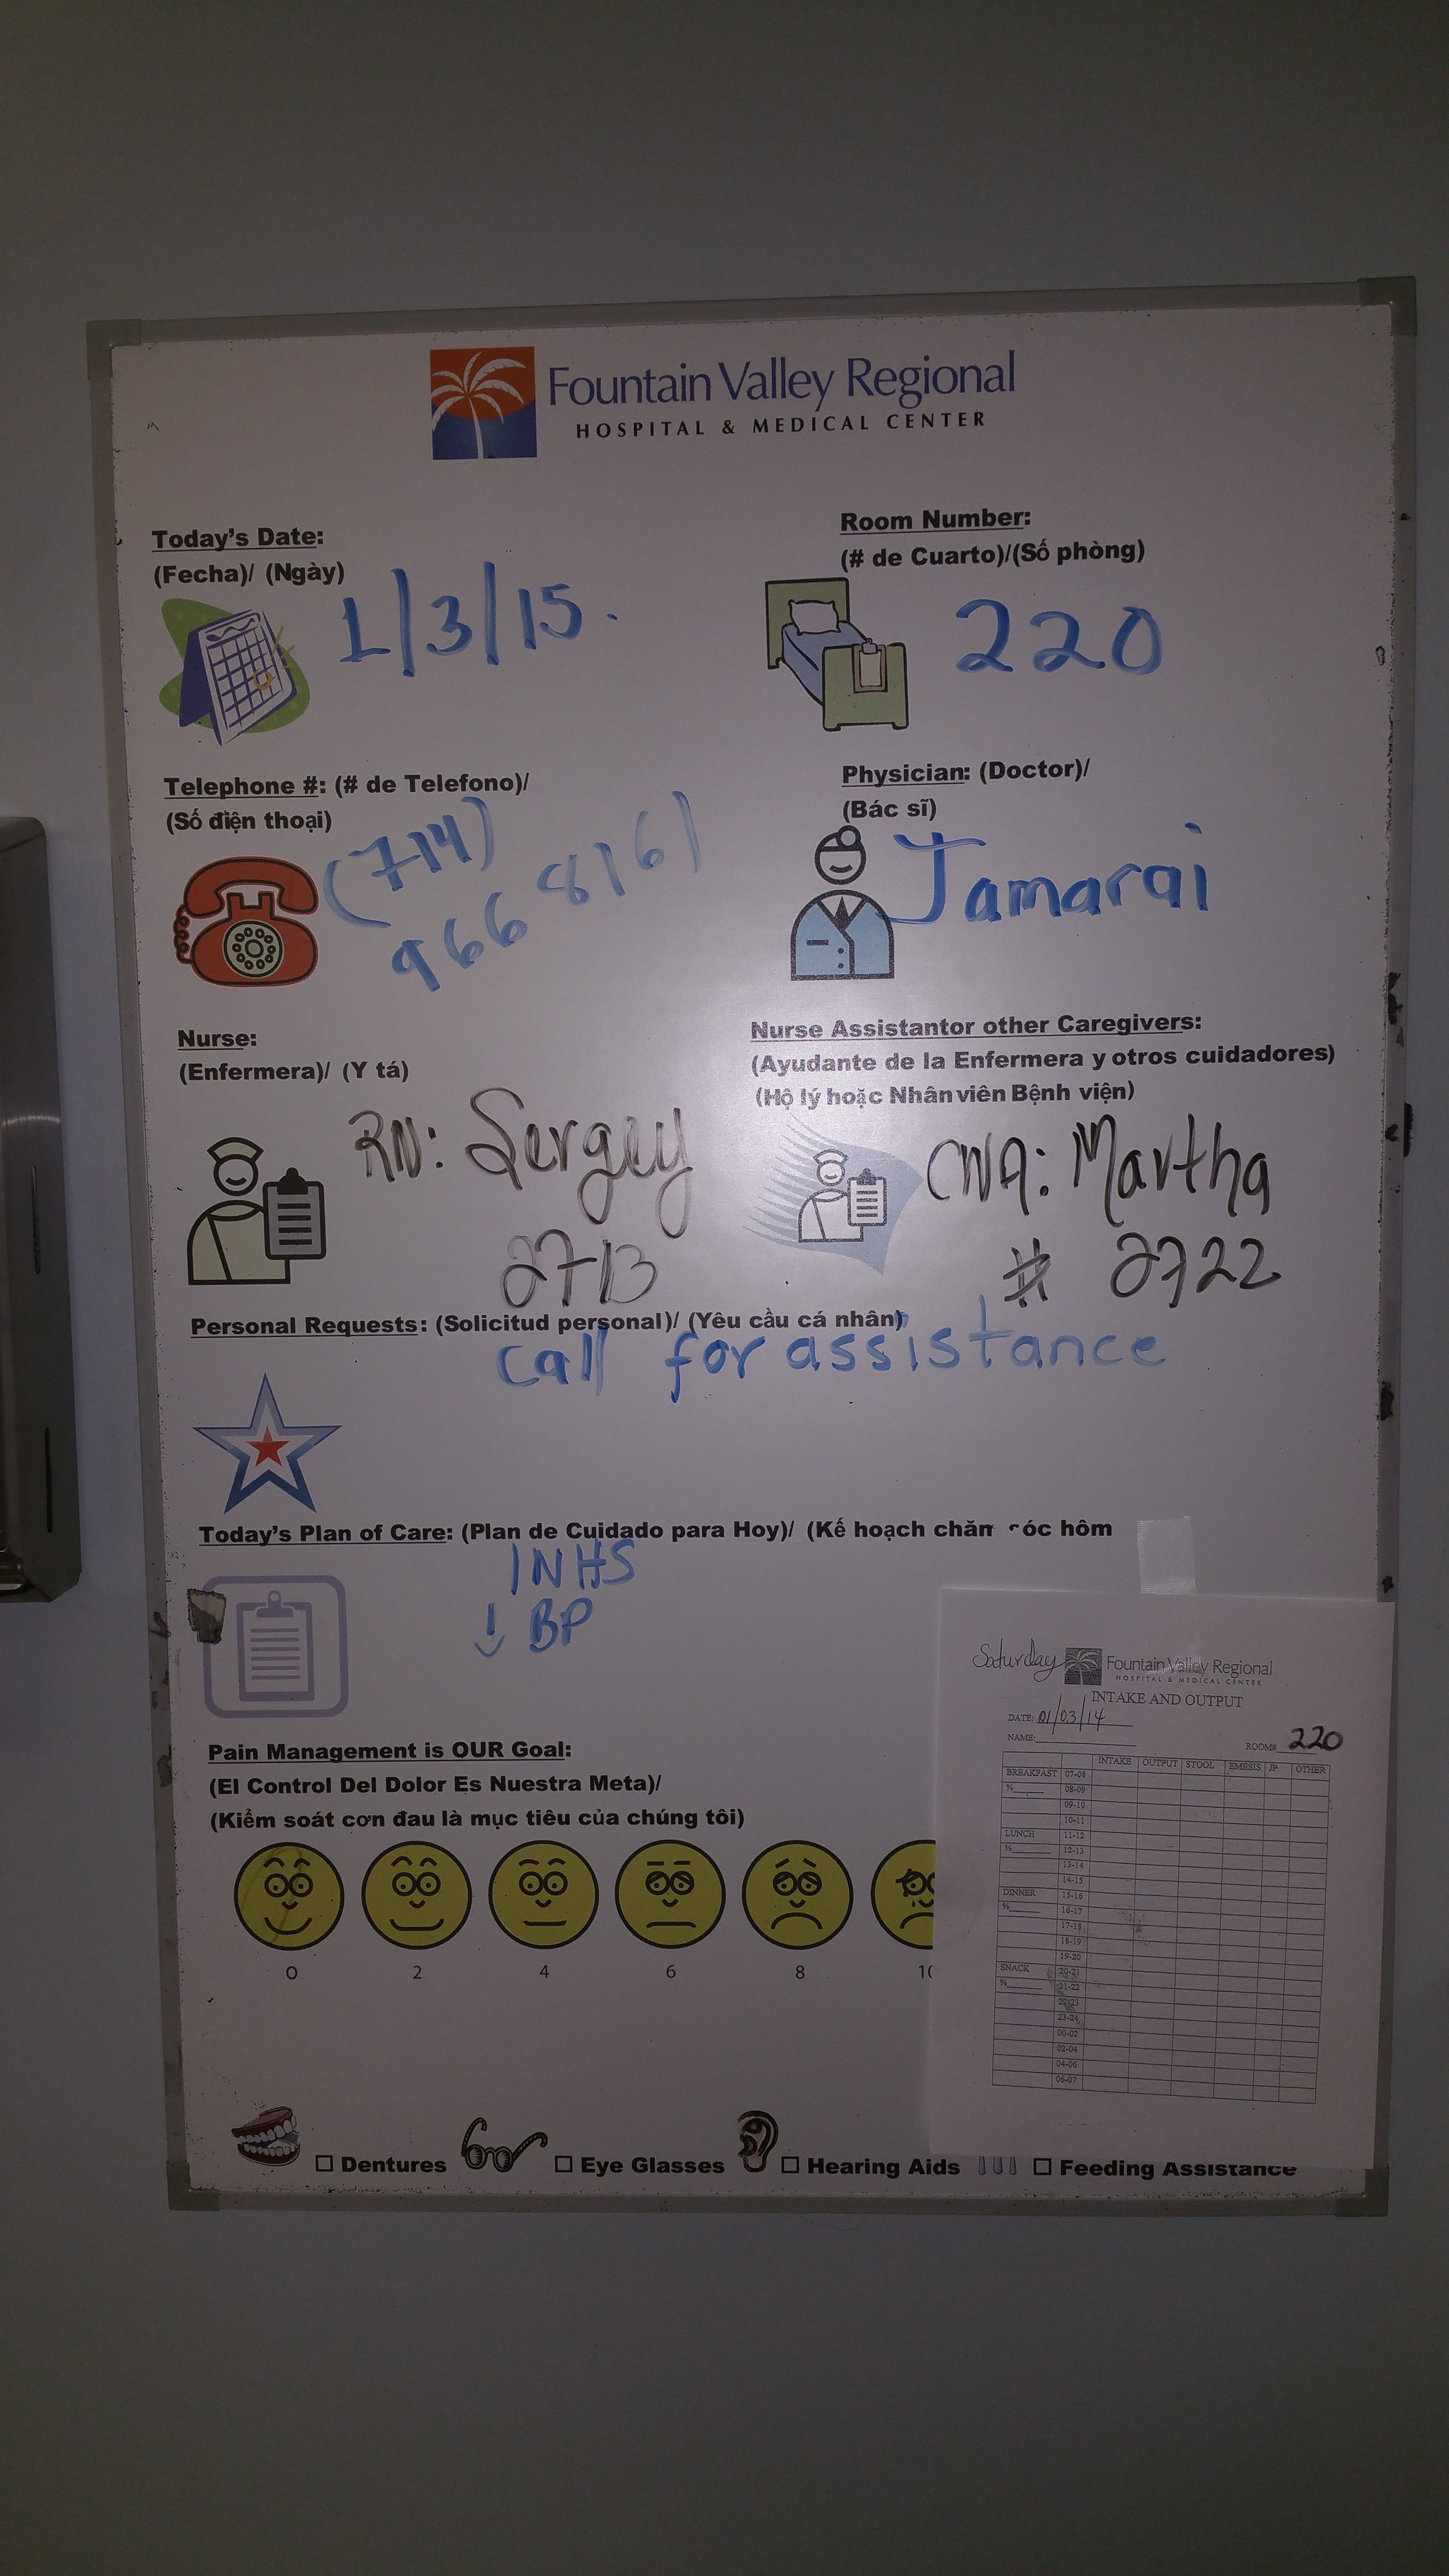 Fountain Valley Regional
HOSPITAL & MEDICAL CENTER
Today's Date:
(Fecha)/ (Ngày)
1/3/15.
Room Number:
(# de Cuarto)/(Số phòng)
220
Telephone #: (# de Telefono)/
(Số điện thoại)
(714)
966 8161
Physician: (Doctor)/
(Bác sĩ)
Jamarai
Nurse:
(Enfermera)/ (Y tá)
RN: Sergey
2713
Nurse Assistantor other Caregivers:
(Ayudante de la Enfermera y otros cuidadores)
(Hộ lý hoặc Nhân viên Bệnh viện)
CNA: Martha
# 2722
Personal Requests: (Solicitud personal)/ (Yêu cầu cá nhân)
call for assistance
Today's Plan of Care: (Plan de Cuidado para Hoy)/ (Kế hoạch chăm sóc hôm
INHS
↓ BP
Pain Management is OUR Goal:
(El Control Del Dolor Es Nuestra Meta)/
(Kiểm soát cơn đau là mục tiêu của chúng tôi)
0 2 4 6 8 10
Saturday
Fountain Valley Regional
HOSPITAL & MEDICAL CENTER
INTAKE AND OUTPUT
DATE: 01/03/14
NAME:
ROOM# 220
INTAKE OUTPUT STOOL EMESIS JP OTHER
BREAKFAST 07-08
% 08-09
09-10
10-11
LUNCH 11-12
% 12-13
13-14
14-15
DINNER 15-16
% 16-17
17-18
18-19
19-20
SNACK 20-21
% 21-22
22-23
23-24
00-02
02-04
04-06
06-07
Dentures Eye Glasses Hearing Aids Feeding Assistance